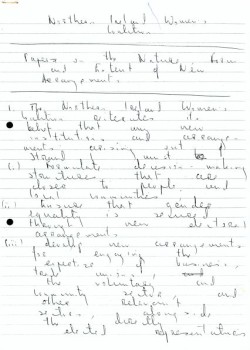 Northern Ireland Women's
Coalition
Papers on the Nature, Form
and Extent of New
Arrangements.
1. The Northern Ireland Women's
Coalition reiterates its
belief that any new
institutions and arrange-
ments arising out of
Strand 1 must
(i) formulate decision making
structures that are
closer to people and
local communities
(ii) Ensure that gender
equality is secured
through new electoral
arrangements.
(iii) develop new arrangements
for engaging the
expertise of business,
trade unions,
the voluntary and
community sector and
other relevant
sectors, alongside
the directly
elected representatives